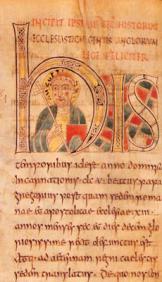 INCIPIT IPSIUS HISTORIAE
ECCLESIASTICAE GENTIS ANGLORUM
LEGE FELICITER
his
temporibus id est anno dominicae
incarnationis dc v beatus papa
gregorius postquam sedem roma
nae et apostolicae ecclesiae xiii
annos menses et dies decem glo
riosissime rexit defunctus est
atque ad aeternam regni caelestis
sedem translatus. De quo nos